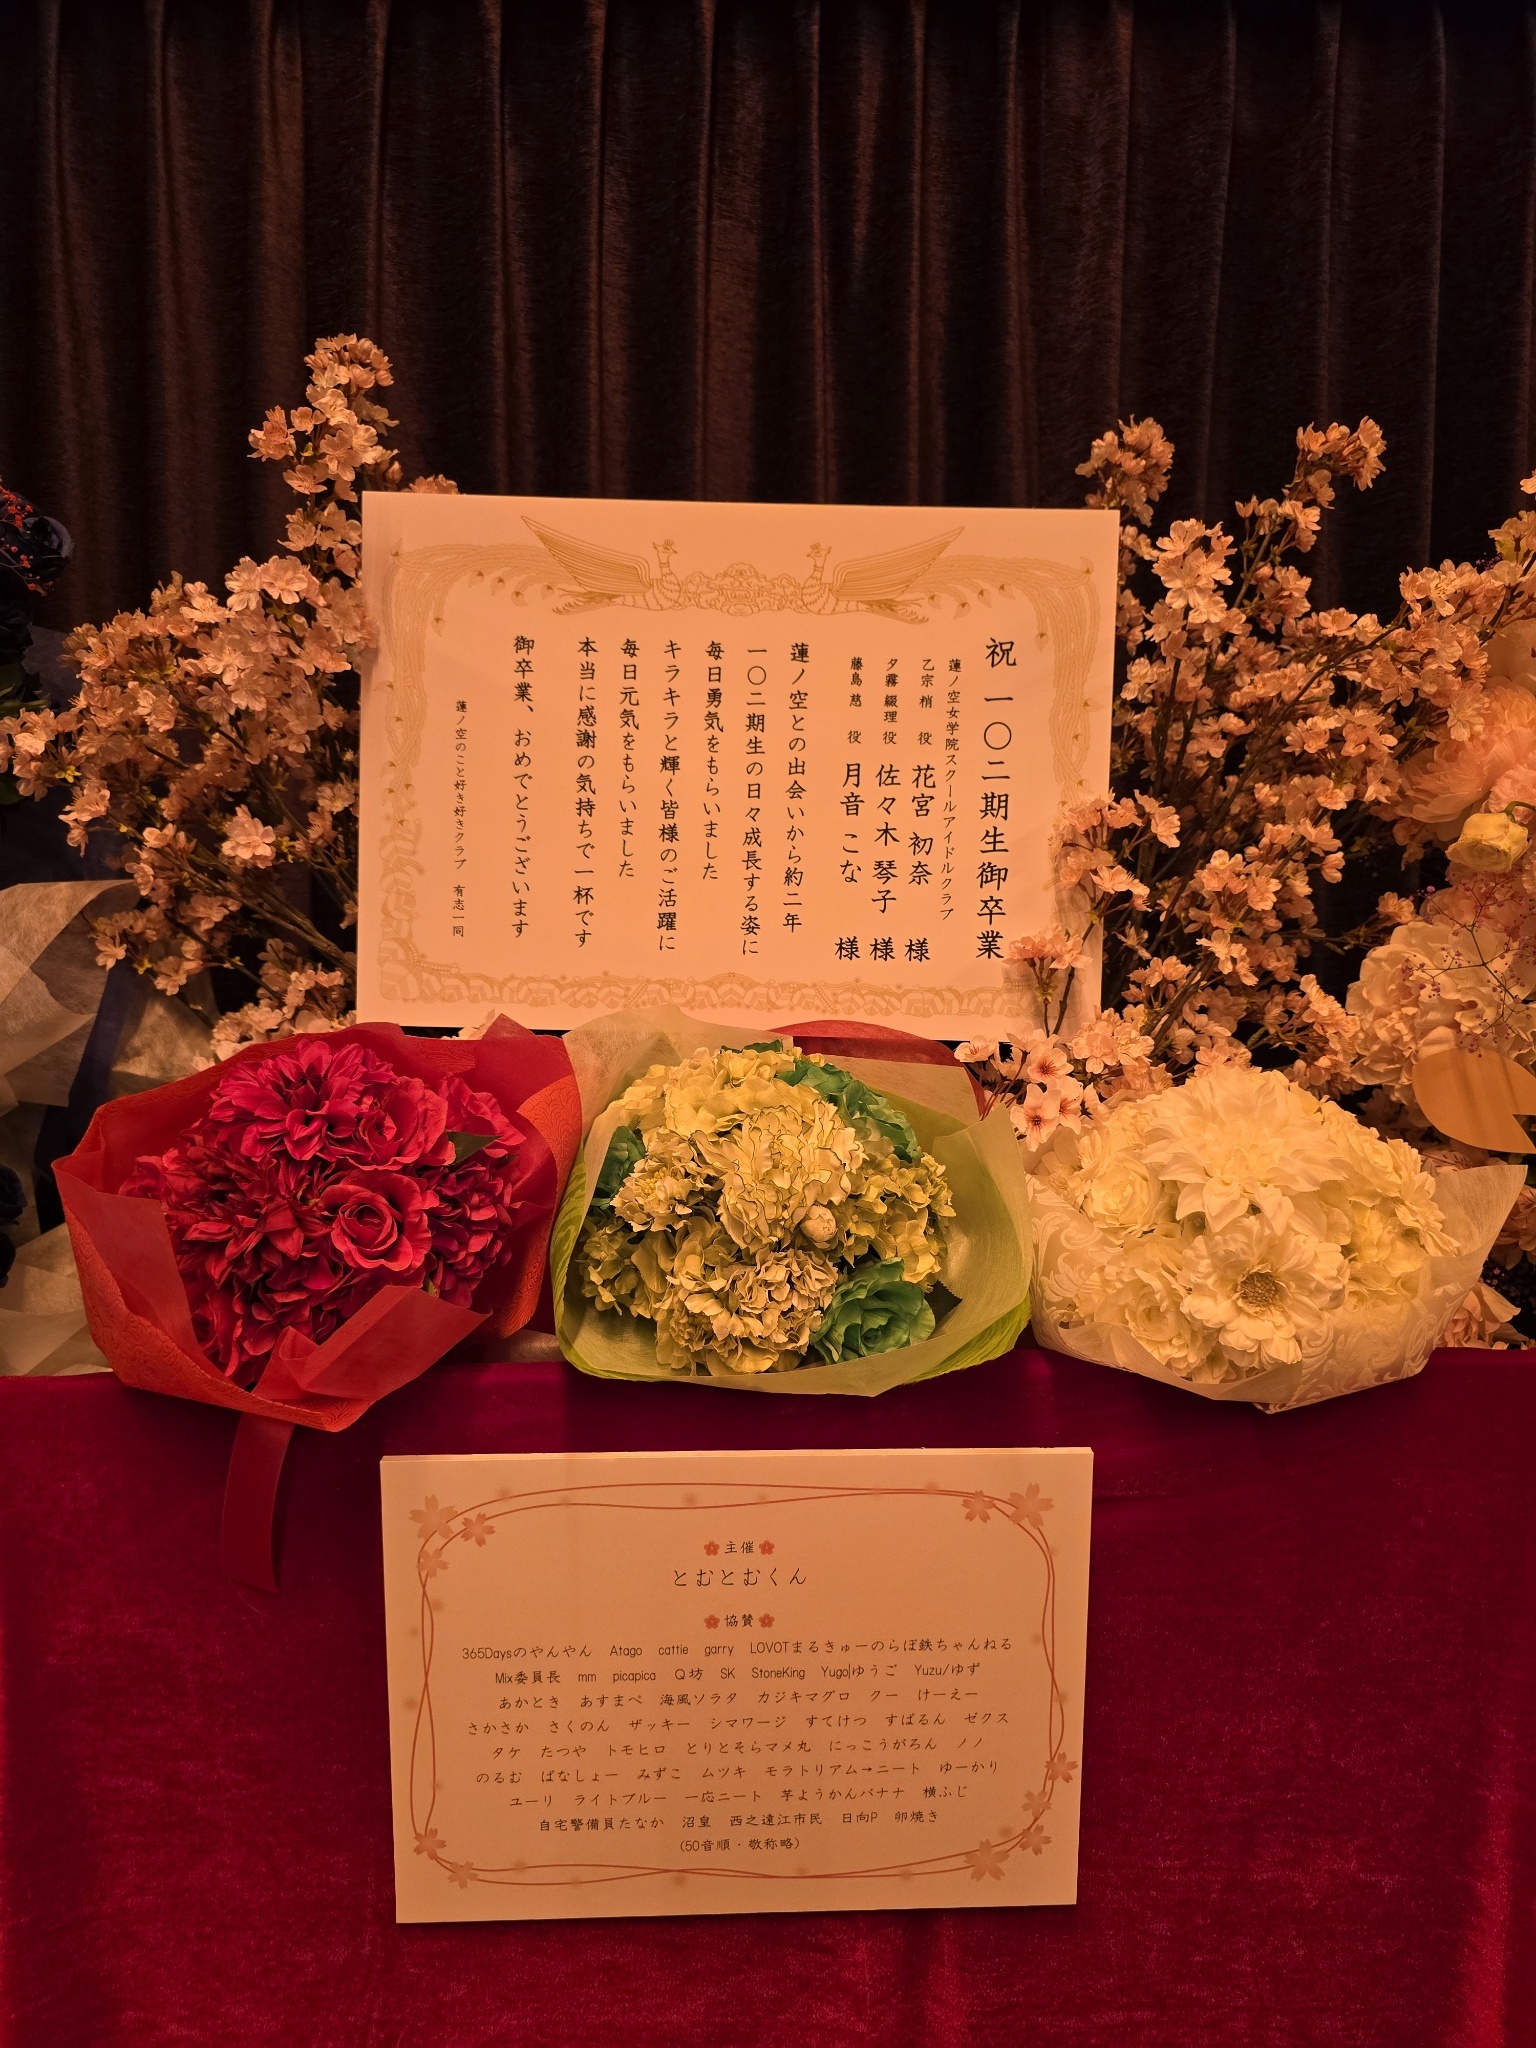 祝 一〇二期生御卒業
蓮ノ空女学院スクールアイドルクラブ
乙宗 梢 役 花宮 初奈 様
夕霧 綴理 役 佐々木 琴子 様
藤島 慈 役 月音 こな 様
蓮ノ空との出会いから約二年
一〇二期生の日々成長する姿に
毎日勇気をもらいました
キラキラと輝く皆様のご活躍に
毎日元気をもらいました
本当に感謝の気持ちで一杯です
御卒業、おめでとうございます
蓮ノ空のこと好き好きクラブ 有志一同
主催
とむとむくん
協賛
365Daysのやんやん Atago cattie garry LOVOTまるきゅーのらぼ鉄ちゃんねる
Mix委員長 mm picapica Q坊 SK StoneKing Yugo|ゆうご Yuzu/ゆず
あかとき あすまぺ 海風ソラタ カジキマグロ クー けーえー
さかさか さくのん ザッキー シマワージ すてけつ すばるん ゼクス
タケ たつや トモヒロ とりとそらマメ丸 にっこうがろん ノノ
のるむ ばなしょー みずこ ムツキ モラトリアム→ニート ゆーかり
ユーリ ライトブルー 一応ニート 芋ようかんバナナ 横ふじ
自宅警備員たなか 沼皇 西之遠江市民 日向P 卵焼き
(50音順・敬称略)